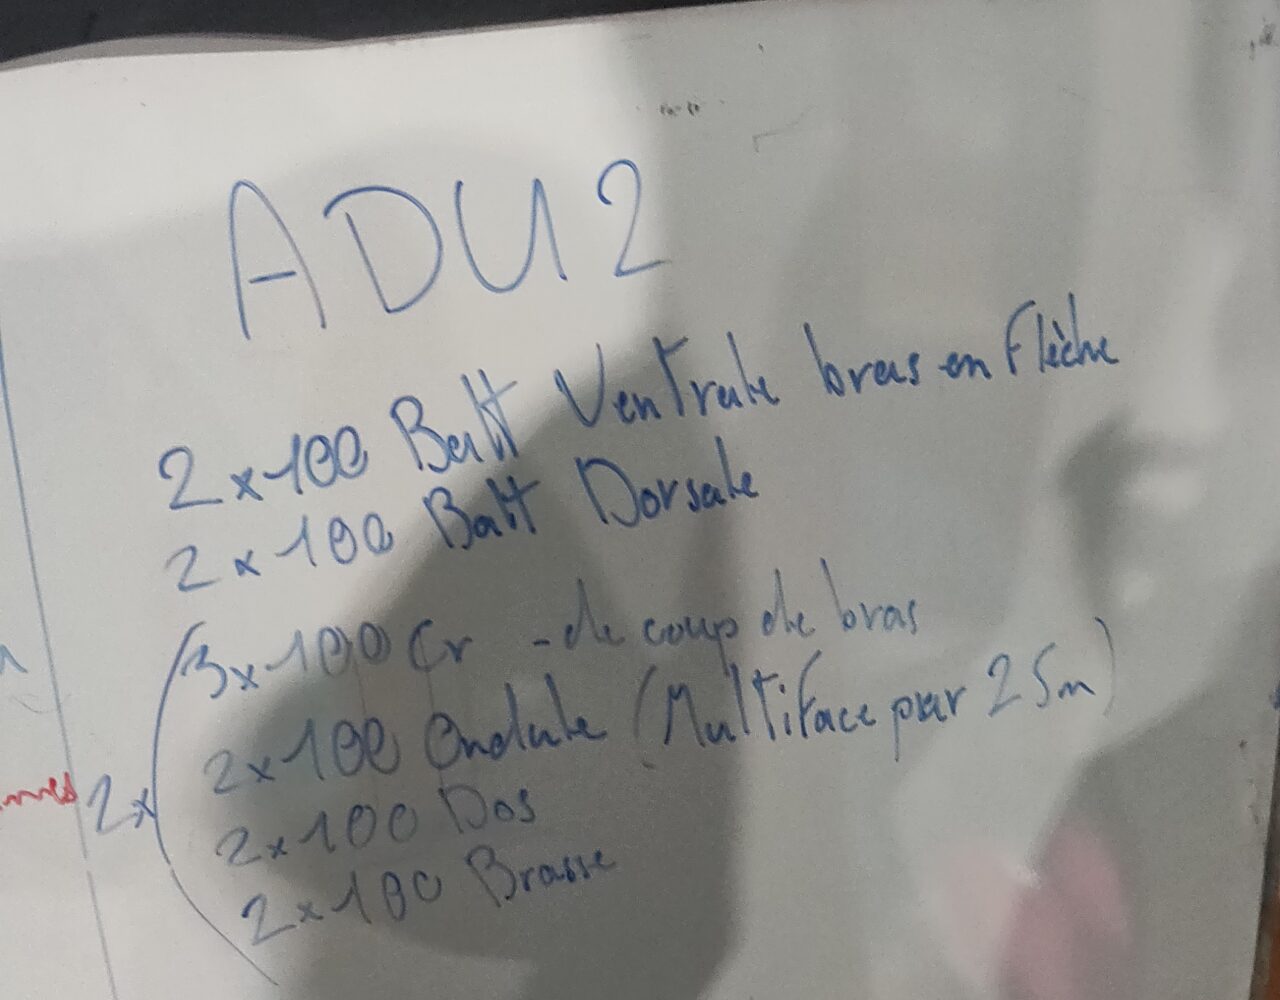 ADU 2
2x100 Batt Ventrale bras en Flèche
2x100 Batt Dorsale
3x100 Cr - de coup de bras
2x100 Ondule (Multiface par 25m)
2x
2x100 Dos
2x100 Brasse